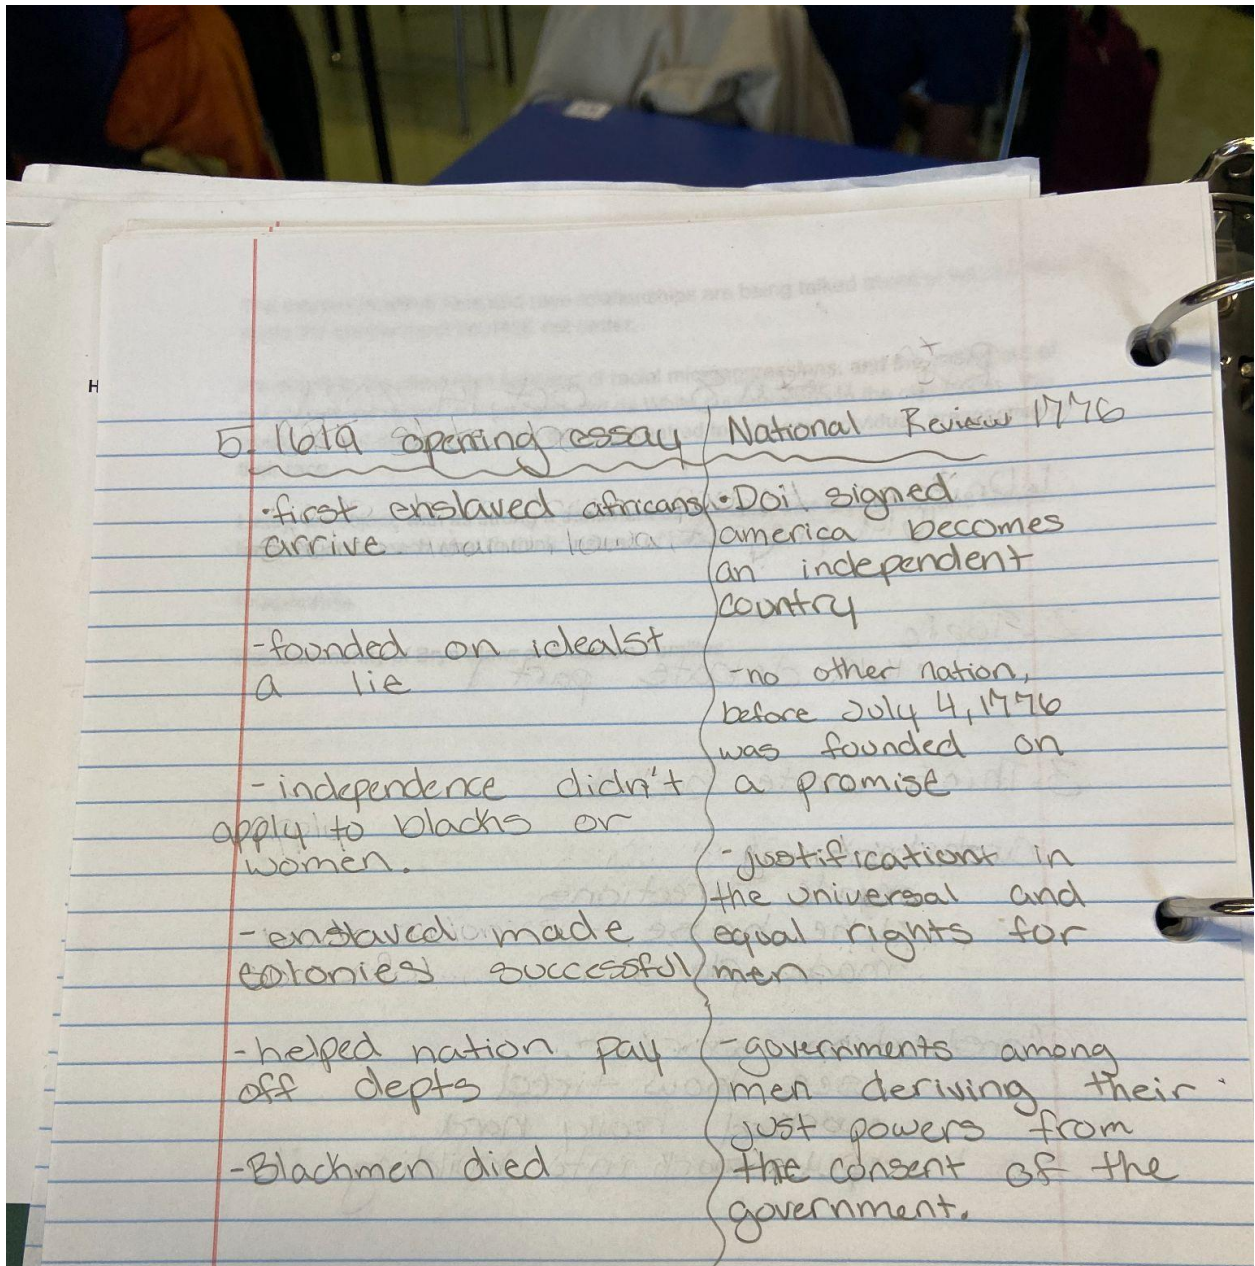 H
5. 1619 opening essay
·first enslaved africans
arrive
-founded on idealst
a lie
-independence didn't
apply to blacks or
women.
-enslaved made
colonies successful
-helped nation pay
off depts
-Blackmen died
National Review 1776
·DoI signed
america becomes
an independent
country
-no other nation,
before July 4, 1776
was founded on
a promise
-justification in
the universal and
equal rights for
men
-governments among
men deriving their
just powers from
the consent of the
government.